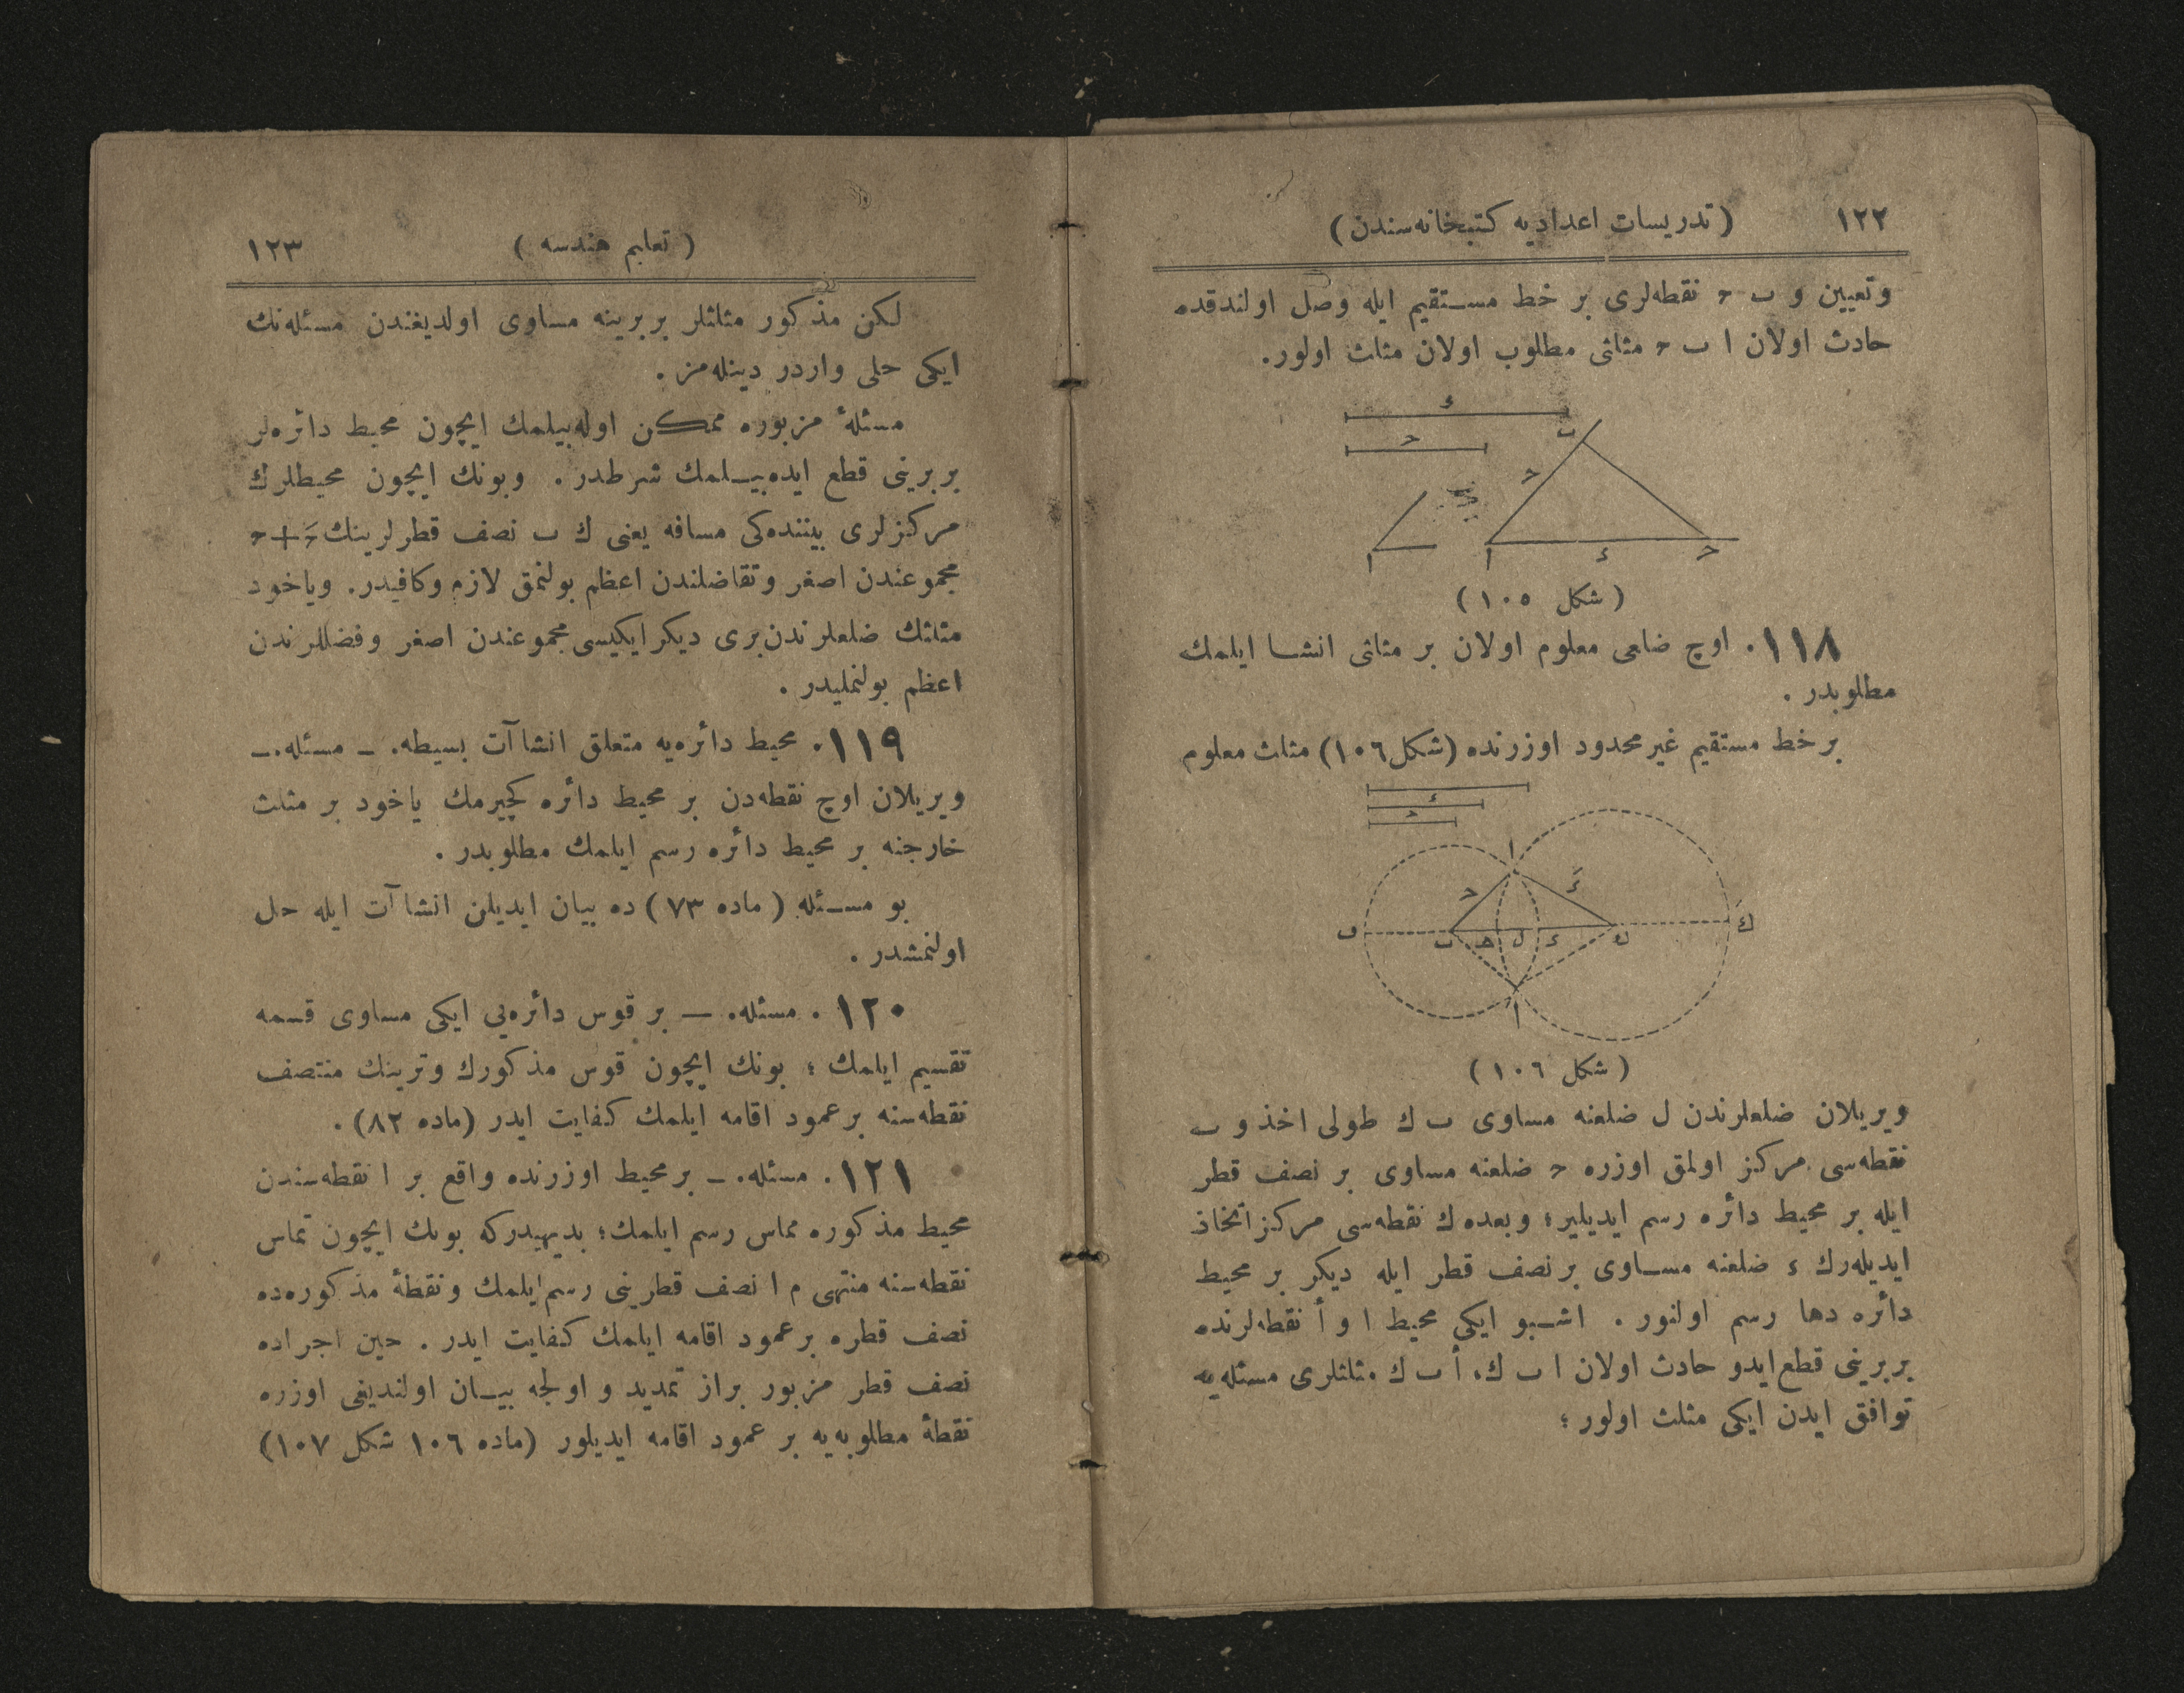 ١٢٢
( تدریسات اعدادیه کتبخانه‌سندن )
وتعیین و ب ح نقطه‌لری بر خط مستقیم ایله وصل اولندقده
حادث اولان ا ب ح مثلثی مطلوب اولان مثلث اولور.
ء
ح
ب
ح
ا
ا
ء
ح
( شکل ١٠٥ )
١١٨. اوچ ضلعی معلوم اولان بر مثلثی انشا ایلمك
مطلوبدر .
بر خط مستقیم غیر محدود اوزرنده (شکل ١٠٦) مثلث معلوم
ء
ح
ا
ح
ب
ل
ء
ك
ا
( شکل ١٠٦ )
ویریلان ضلعلرندن ل ضلعنه مساوی ب ك طولی اخذ و ب
نقطه‌سی مرکز اولمق اوزره ح ضلعنه مساوی بر نصف قطر
ایله بر محیط دائره رسم ایدیلیر؛ وبعده ك نقطه‌سی مرکز اتخاذ
ایدیله‌رك ء ضلعنه مساوی بر نصف قطر ایله دیکر بر محیط
دائره دها رسم اولنور . اشبو ایکی محیط ا و أ نقطه‌لرنده
بربرینی قطع ایدو حادث اولان ا ب ك، أ ب ك مثلثلری مسئله‌یه
توافق ایدن ایکی مثلث اولور ؛
( تعلیم هندسه )
١٢٣
لکن مذکور مثلثلر بربرینه مساوی اولدیغندن مسئله‌نك
ایکی حلی واردر دینله‌مز .
مسئلهٔ مزبوره ممکن اوله‌بیلمك ایچون محیط دائره‌لر
بربرینی قطع ایده‌بیلمك شرطدر . وبونك ایچون محیطلرك
مرکزلری بیننده‌کی مسافه یعنی ك ب نصف قطرلرینك ءَ + ح
مجموعندن اصغر وتفاضلندن اعظم بولنمق لازم وکافیدر. ویاخود
مثلثك ضلعلرندن بری دیکر ایکیسی مجموعندن اصغر وفضللرندن
اعظم بولنملیدر .
١١٩. محیط دائره‌یه متعلق انشاآت بسیطه. ـ مسئله.ـ
ویریلان اوچ نقطه‌دن بر محیط دائره کچیرمك یاخود بر مثلث
خارجنه بر محیط دائره رسم ایلمك مطلوبدر .
بو مسئله ( ماده ٧٣ ) ده بیان ایدیلن انشاآت ایله حل
اولنمشدر .
١٢٠ . مسئله. — بر قوس دائره‌یی ایکی مساوی قسمه
تقسیم ایلمك ؛ بونك ایچون قوس مذکورك وترینك منتصف
نقطه‌سنه بر عمود اقامه ایلمك کفایت ایدر (ماده ٨٢) .
١٢١ . مسئله. ـ بر محیط اوزرنده واقع بر ا نقطه‌سندن
محیط مذکوره مماس رسم ایلمك؛ بدیهیدرکه بونك ایچون تماس
نقطه‌سنه منتهی م ا نصف قطرینی رسم ایلمك ونقطهٔ مذکوره‌ده
نصف قطره بر عمود اقامه ایلمك کفایت ایدر . حین اجراده
نصف قطر مزبور براز تمدید و اولجه بیان اولندیغی اوزره
نقطهٔ مطلوبه‌یه بر عمود اقامه ایدیلور (ماده ١٠٦ شکل ١٠٧)